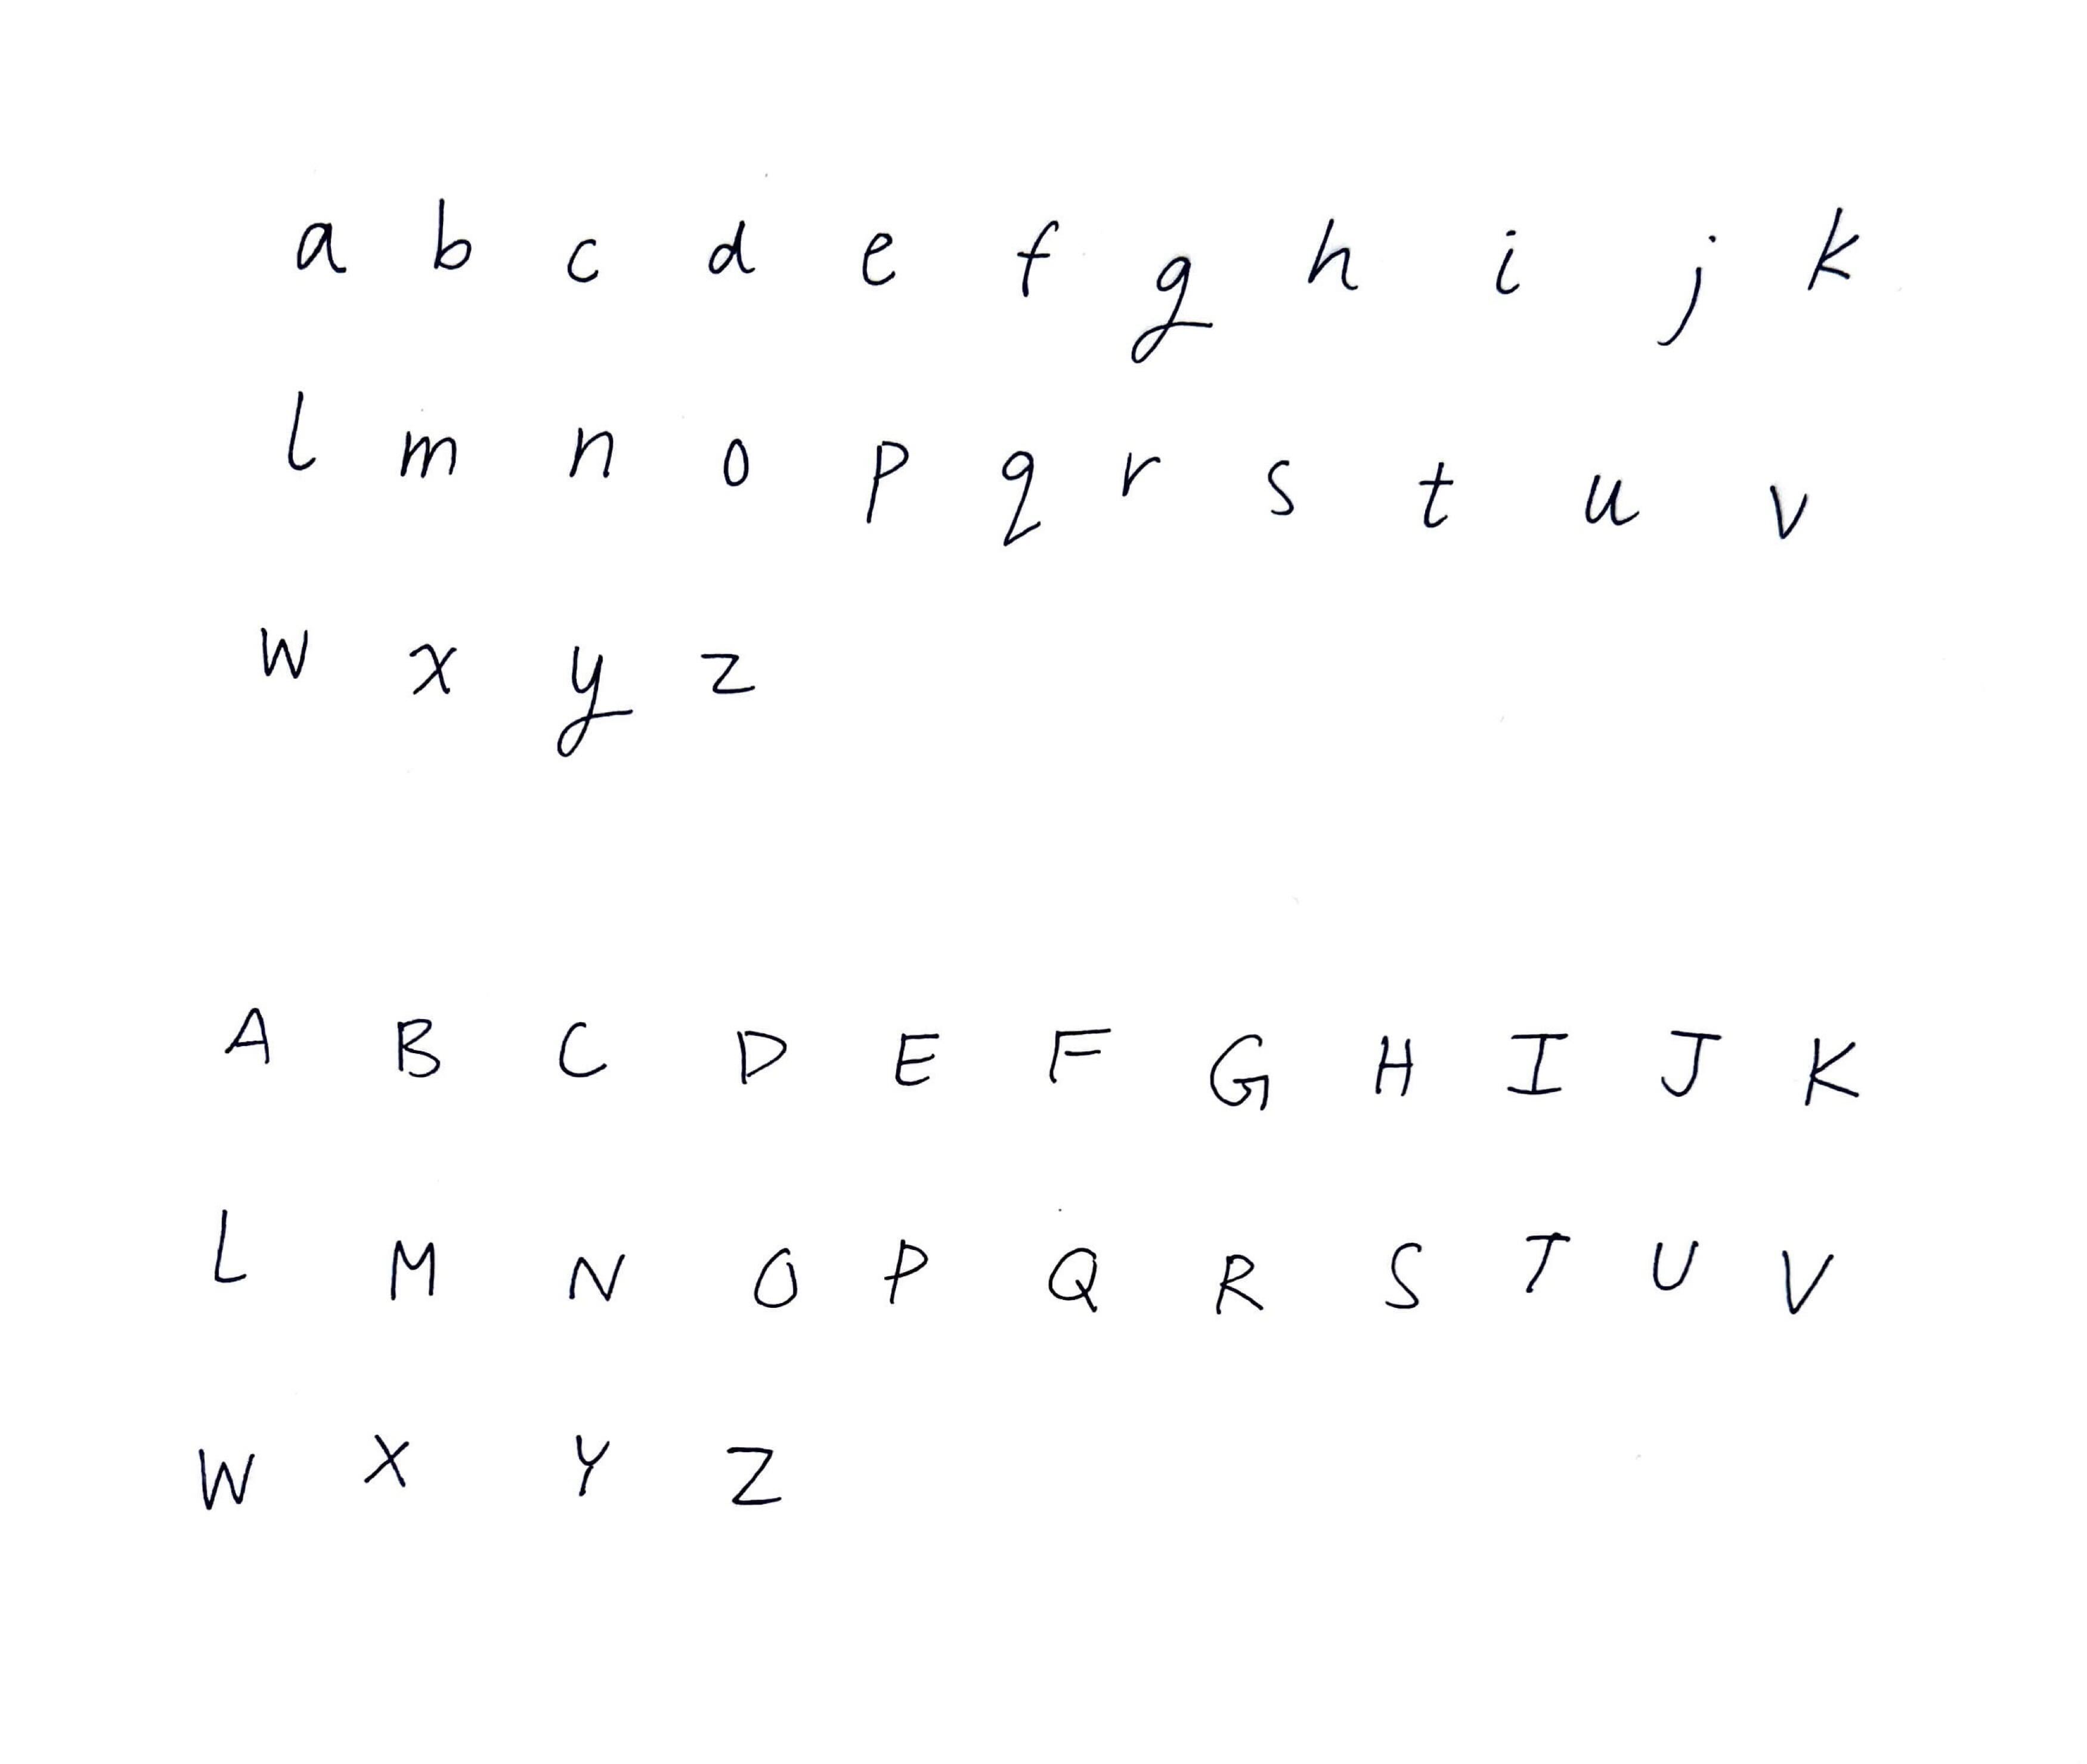 a b c d e f g h i j k
l m n o p q r s t u v
w x y z
A B C D E F G H I J K
L M N O P Q R S T U V
W X Y Z